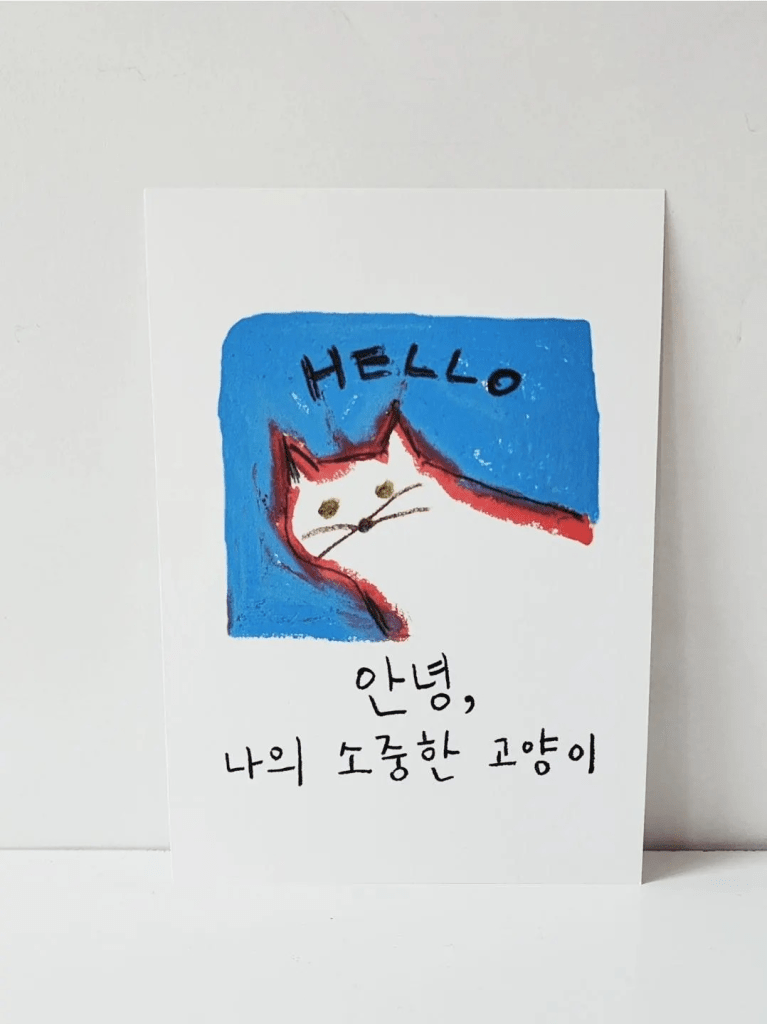 HELLO
안녕,
나의 소중한 고양이